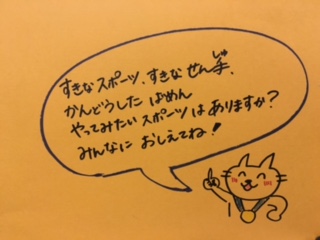 すきなスポーツ、すきなせん手、
かんどうした ばめん
やってみたいスポーツはありますか?
みんなに おしえてね!